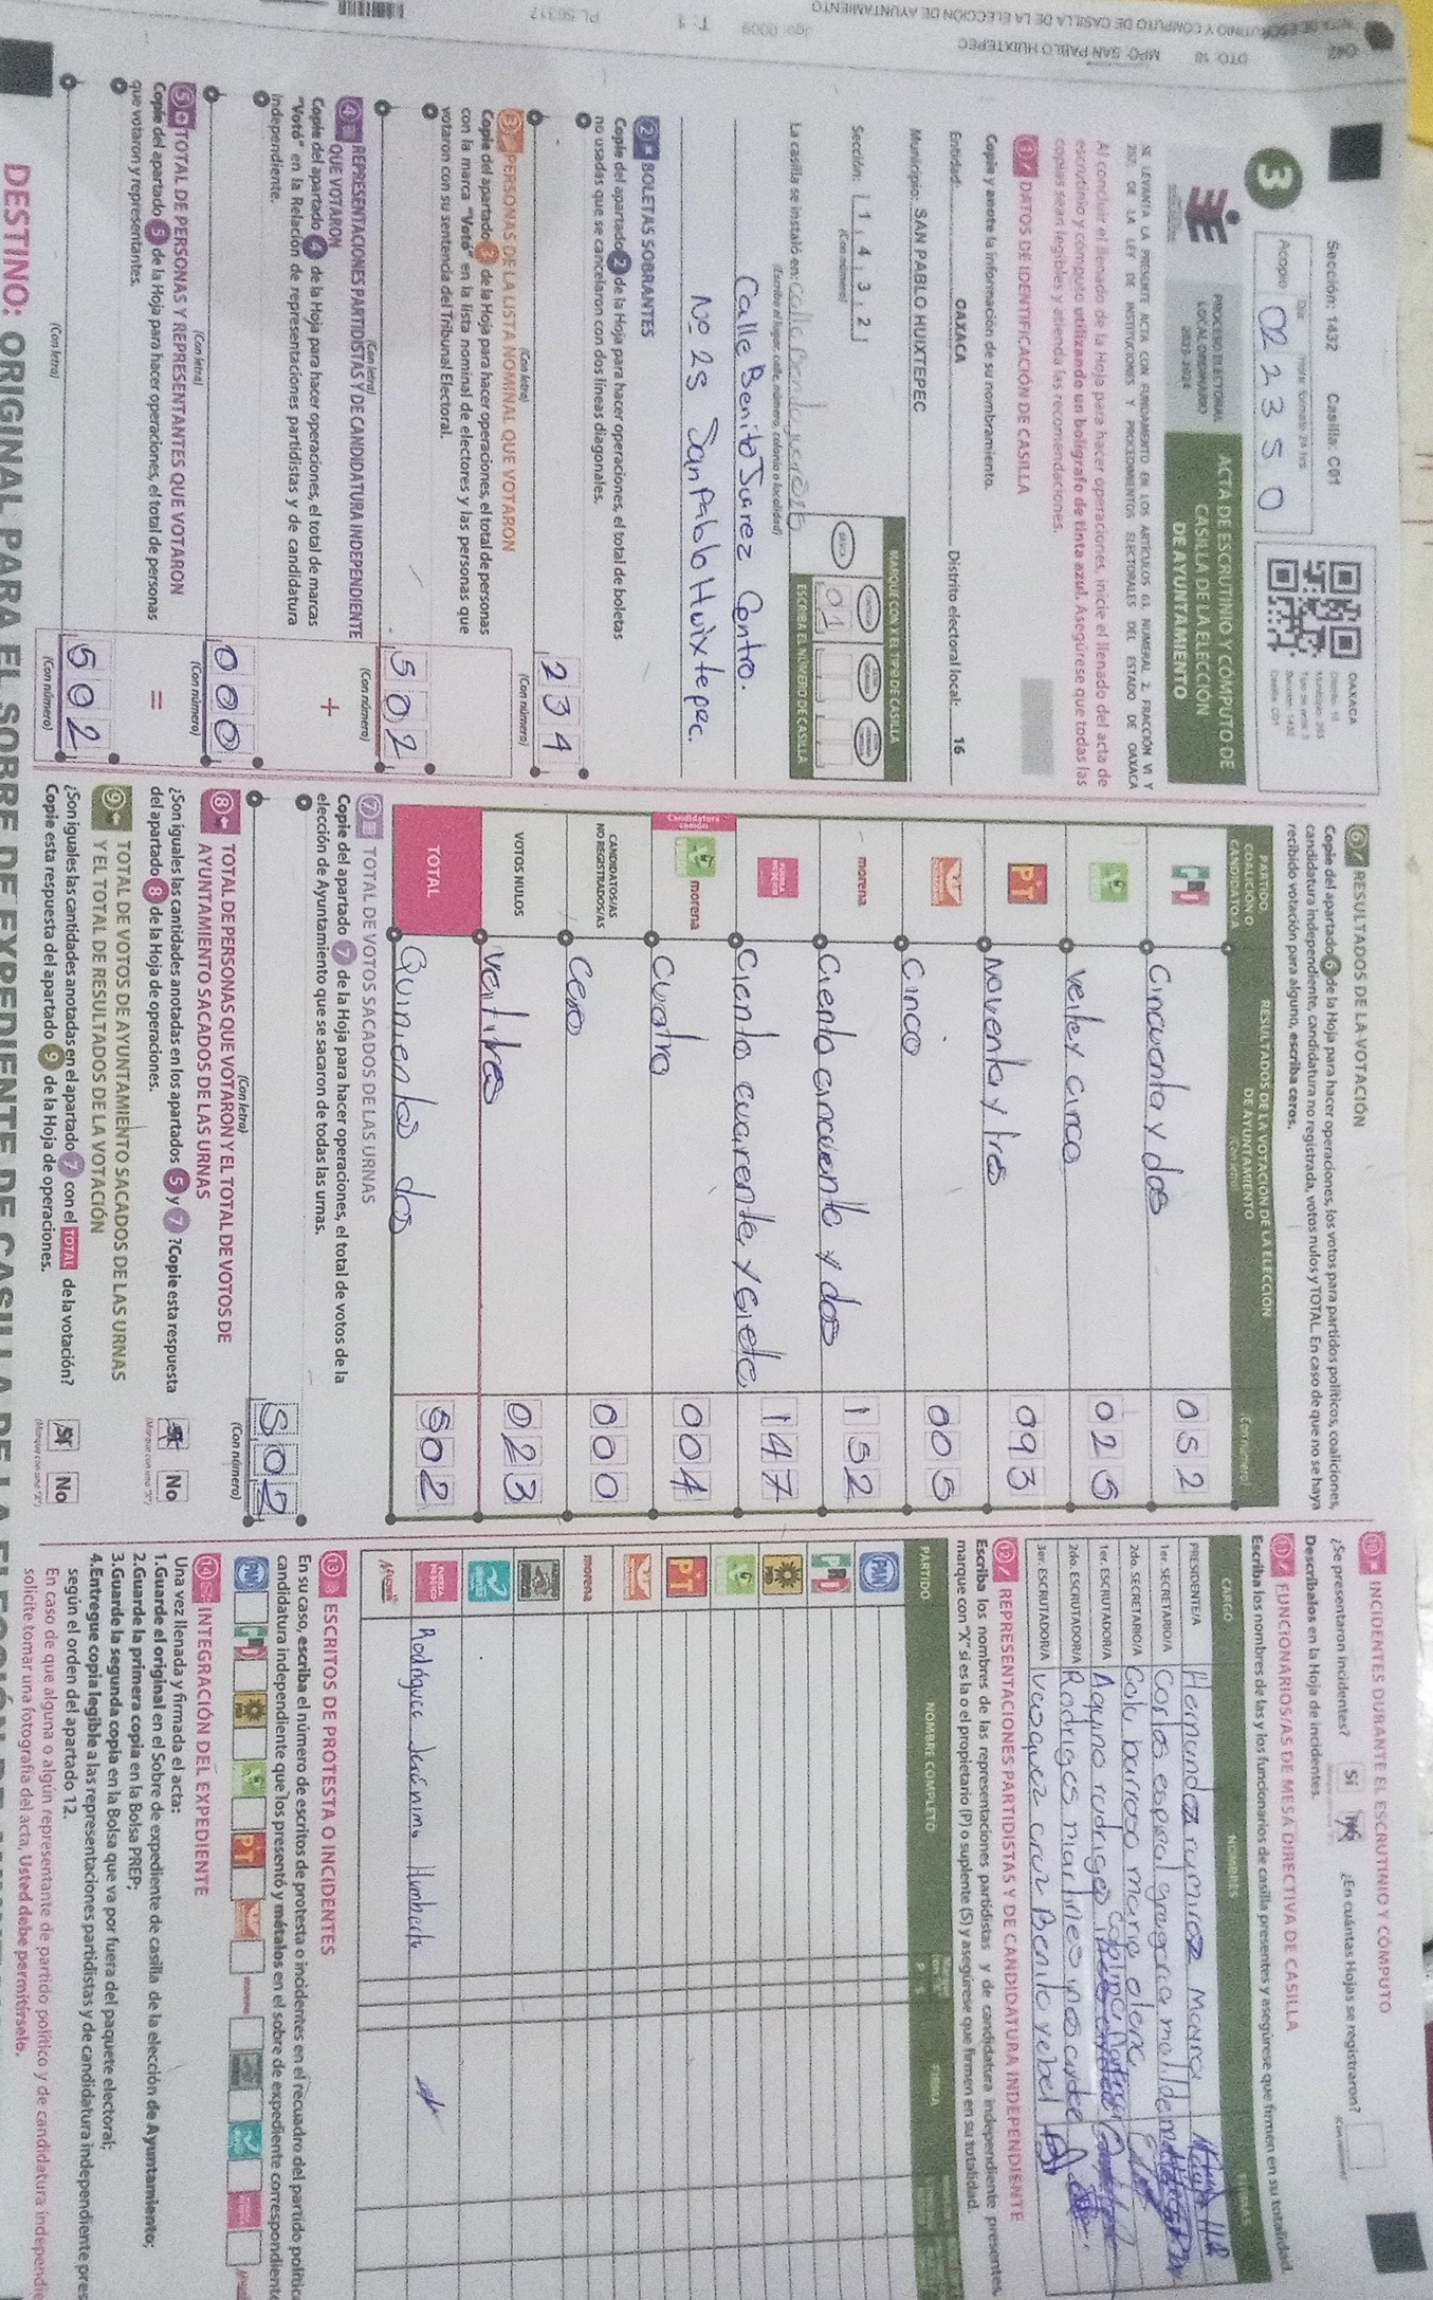 DTO: 16 MPO: SAN PABLO HUIXTEPEC
ACTA DE ESCRUTINIO Y CÓMPUTO DE CASILLA DE LA ELECCIÓN DE AYUNTAMIENTO
Sección: 1432 Casilla: C01
3
Acopio
02 23 50
OAXACA
PROCESO ELECTORAL
LOCAL ORDINARIO
2023-2024
ACTA DE ESCRUTINIO Y CÓMPUTO DE
CASILLA DE LA ELECCIÓN
DE AYUNTAMIENTO
SE LEVANTA LA PRESENTE ACTA CON FUNDAMENTO EN LOS ARTÍCULOS 63, NUMERAL 2, FRACCIÓN VI Y
DE LA LEY DE INSTITUCIONES Y PROCEDIMIENTOS ELECTORALES DEL ESTADO DE OAXACA
Al concluir el llenado de la Hoja para hacer operaciones, inicie el llenado del acta de
escrutinio y cómputo utilizando un bolígrafo de tinta azul. Asegúrese que todas las
copias sean legibles y atienda las recomendaciones.
1 DATOS DE IDENTIFICACIÓN DE CASILLA
Copie y anote la información de su nombramiento.
Entidad: OAXACA Distrito electoral local: 16
Municipio: SAN PABLO HUIXTEPEC
Sección: 1 4 3 2
(Con número)
MARQUE CON X EL TIPO DE CASILLA
01
ESCRIBA EL NÚMERO DE CASILLA
La casilla se instaló en:
(Escriba el lugar, calle, número, colonia o localidad)
Calle Benito Juarez Centro.
Nº 25 San Pablo Huixtepec.
2 BOLETAS SOBRANTES
Copie del apartado 2 de la Hoja para hacer operaciones, el total de boletas
no usadas que se cancelaron con dos líneas diagonales.
234
(Con letra) (Con número)
3 PERSONAS DE LA LISTA NOMINAL QUE VOTARON
Copie del apartado 3 de la Hoja para hacer operaciones, el total de personas
con la marca "Votó" en la lista nominal de electores y las personas que
votaron con su sentencia del Tribunal Electoral.
502
(Con letra) (Con número)
4 REPRESENTACIONES PARTIDISTAS Y DE CANDIDATURA INDEPENDIENTE
QUE VOTARON
Copie del apartado 4 de la Hoja para hacer operaciones, el total de marcas
"Votó" en la Relación de representaciones partidistas y de candidatura
independiente.
+
000
(Con letra) (Con número)
5 TOTAL DE PERSONAS Y REPRESENTANTES QUE VOTARON
Copie del apartado 5 de la Hoja para hacer operaciones, el total de personas
que votaron y representantes.
=
502
(Con letra) (Con número)
6 RESULTADOS DE LA VOTACIÓN
Copie del apartado 6 de la Hoja para hacer operaciones, los votos para partidos políticos, coaliciones,
candidatura independiente, candidatura no registrada, votos nulos y TOTAL. En caso de que no se haya
recibido votación para alguno, escriba ceros.
PARTIDO,
COALICIÓN O
CANDIDATO/A
RESULTADOS DE LA VOTACIÓN DE LA ELECCIÓN
DE AYUNTAMIENTO
(Con letra) (Con número)
PRI Cincuenta y dos 052
veite y cinco 025
PT Noventa y tres 093
Cinco 005
morena Ciento cincuenta y dos 152
Ciento cuarenta y siete 147
Candidatura común
morena cuatro 004
CANDIDATOS/AS
NO REGISTRADOS/AS
Cero 000
VOTOS NULOS veititres 023
TOTAL Quinientos dos 502
7 TOTAL DE VOTOS SACADOS DE LAS URNAS
Copie del apartado 7 de la Hoja para hacer operaciones, el total de votos de la
elección de Ayuntamiento que se sacaron de todas las urnas.
502
(Con letra) (Con número)
8 TOTAL DE PERSONAS QUE VOTARON Y EL TOTAL DE VOTOS DE
AYUNTAMIENTO SACADOS DE LAS URNAS
¿Son iguales las cantidades anotadas en los apartados 5 y 7 ?Copie esta respuesta
del apartado 8 de la Hoja de operaciones.
Sí No
9 TOTAL DE VOTOS DE AYUNTAMIENTO SACADOS DE LAS URNAS
Y EL TOTAL DE RESULTADOS DE LA VOTACIÓN
¿Son iguales las cantidades anotadas en el apartado 7 con el TOTAL de la votación?
Copie esta respuesta del apartado 9 de la Hoja de operaciones.
Sí No
10 INCIDENTES DURANTE EL ESCRUTINIO Y CÓMPUTO
¿Se presentaron incidentes? Sí No ¿En cuántas Hojas se registraron?
Descríbalos en la Hoja de incidentes.
11 FUNCIONARIOS/AS DE MESA DIRECTIVA DE CASILLA
Escriba los nombres de las y los funcionarios de casilla presentes y asegúrese que firmen en su totalidad.
CARGO NOMBRES FIRMAS
PRESIDENTE/A Hernandez ramirez Mayra
1er. SECRETARIO/A
2do. SECRETARIO/A
1er. ESCRUTADOR/A
2do. ESCRUTADOR/A
3er. ESCRUTADOR/A vasquez cruz Benito yebel
12 REPRESENTACIONES PARTIDISTAS Y DE CANDIDATURA INDEPENDIENTE
Escriba los nombres de las representaciones partidistas y de candidatura independiente presentes,
marque con "X" si es la o el propietario (P) o suplente (S) y asegúrese que firmen en su totalidad.
PARTIDO NOMBRE COMPLETO P S FIRMA
PAN
PRI
PRD
PT
morena
Rodríguez Jerónimo Humberto
13 ESCRITOS DE PROTESTA O INCIDENTES
En su caso, escriba el número de escritos de protesta o incidentes en el recuadro del partido político
candidatura independiente que los presentó y métalos en el sobre de expediente correspondiente
PAN PRI PRD PT
14 INTEGRACIÓN DEL EXPEDIENTE
Una vez llenada y firmada el acta:
1.Guarde el original en el Sobre de expediente de casilla de la elección de Ayuntamiento;
2.Guarde la primera copia en la Bolsa PREP;
3.Guarde la segunda copia en la Bolsa que va por fuera del paquete electoral;
4.Entregue copia legible a las representaciones partidistas y de candidatura independiente pres
según el orden del apartado 12.
En caso de que alguna o algún representante de partido político y de candidatura independie
solicite tomar una fotografía del acta, Usted debe permitírselo.
DESTINO: ORIGINAL PARA EL SOBRE DE EXPEDIENTE DE CASILLA DE LA ELECCIÓN